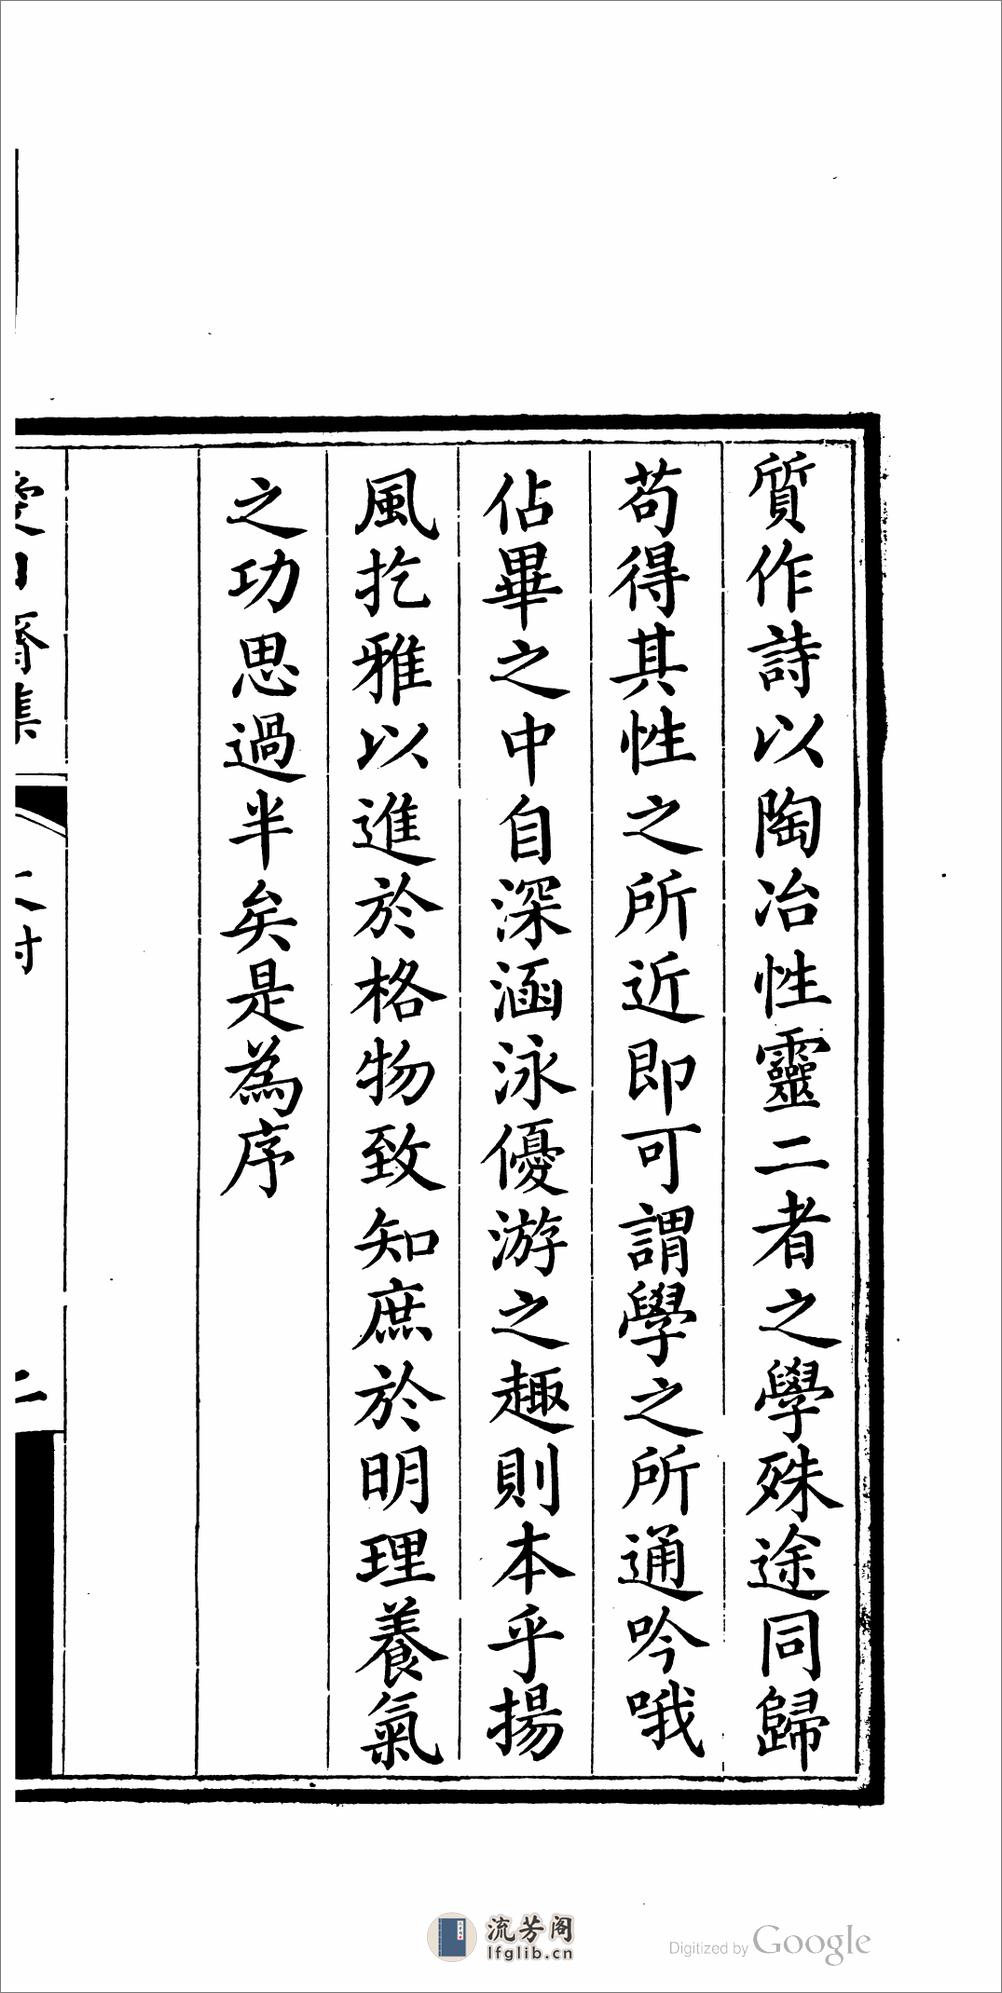 質作詩以陶冶性靈二者之學殊途同歸
苟得其性之所近即可謂學之所通吟哦
佔畢之中自深涵泳優游之趣則本乎揚
風扢雅以進於格物致知庶於明理養氣
之功思過半矣是為序
齋集
二
流芳阁
lfglib.cn
Digitized by Google